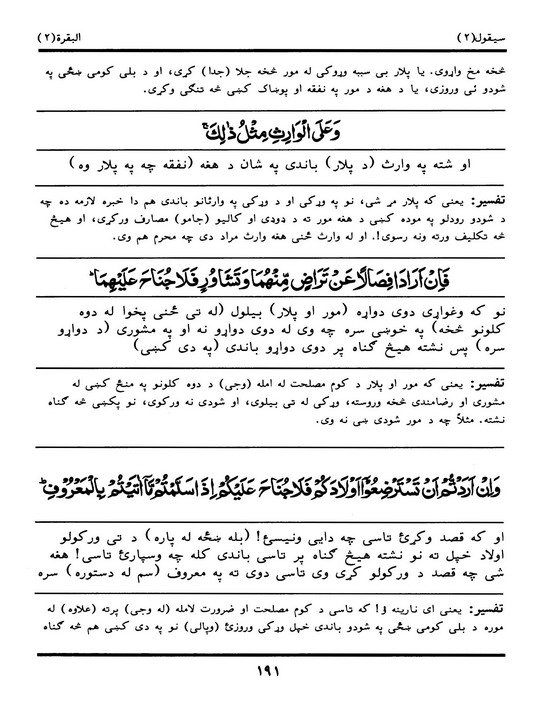 سيقول(٢) البقرة(٢)
څخه مخ واړوی. يا پلار بې سببه وړوکی له مور څخه جلا (جدا) کړی، او د بلی کومی ښځی په
شودو ئی وروزی، يا د هغه د مور په نفقه او پوښاک کښی څه تنګی وکړی.
وَعَلَى الْوَارِثِ مِثْلُ ذٰلِكَ ۚ
او شته په وارث (د پلار) باندی په شان د هغه (نفقه چه په پلار وه)
تفسير: يعنی که پلار مړ شی، نو په وړکی او د وړکی په وارثانو باندی هم دا خبره لازمه ده چه
د شودو رودلو په موده کښی د هغه مور ته د ډوډی او کاليو (جامو) مصارف ورکړی، او هيڅ
څه تکليف ورته ونه رسوی!. او له وارث څنی هغه وارث مراد دی چه محرم هم وی.
فَاِنْ اَرَادَا فِصَالًا عَنْ تَرَاضٍ مِّنْهُمَا وَتَشَاوُرٍ فَلَا جُنَاحَ عَلَيْهِمَا ؕ
نو که وغواړی دوی دواړه (مور او پلار) بيلول (له تی څنی پخوا له دوه
کلونو څخه) په خوښی سره چه وی له دوی دواړو نه او په مشوری (د دواړو
سره) پس نشته هيڅ ګناه پر دوی دواړو باندی (په دی کښی)
تفسير: يعنی که مور او پلار د کوم مصلحت له امله (وجی) د دوه کلونو په منځ کښی له
مشوری او رضامندی څخه وروسته، وړکی له تی بيلوی، او شودی نه ورکوی، نو پکښی څه ګناه
نشته. مثلاً چه د مور شودی ښی نه وی.
وَاِنْ اَرَدْتُّمْ اَنْ تَسْتَرْضِعُوْٓا اَوْلَادَكُمْ فَلَا جُنَاحَ عَلَيْكُمْ اِذَا سَلَّمْتُمْ مَّآ اٰتَيْتُمْ بِالْمَعْرُوْفِ ؕ
او که قصد وکړئ تاسی چه دايی ونيسئ! (بله ښځه له پاره) د تی ورکولو
اولاد خپل ته نو نشته هيڅ ګناه پر تاسی باندی کله چه وسپارئ تاسی! هغه
شی چه قصد د ورکولو کړی وی تاسی دوی ته په معروف (سم له دستوره) سره
تفسير: يعنی ای نارينه ؤ! که تاسی د کوم مصلحت او ضرورت لامله (له وجی) پرته (علاوه) له
موره د بلی کومی ښځی په شودو باندی خپل وړکی وروزئ (وپالی) نو په دی کښی هم څه ګناه
١٩١